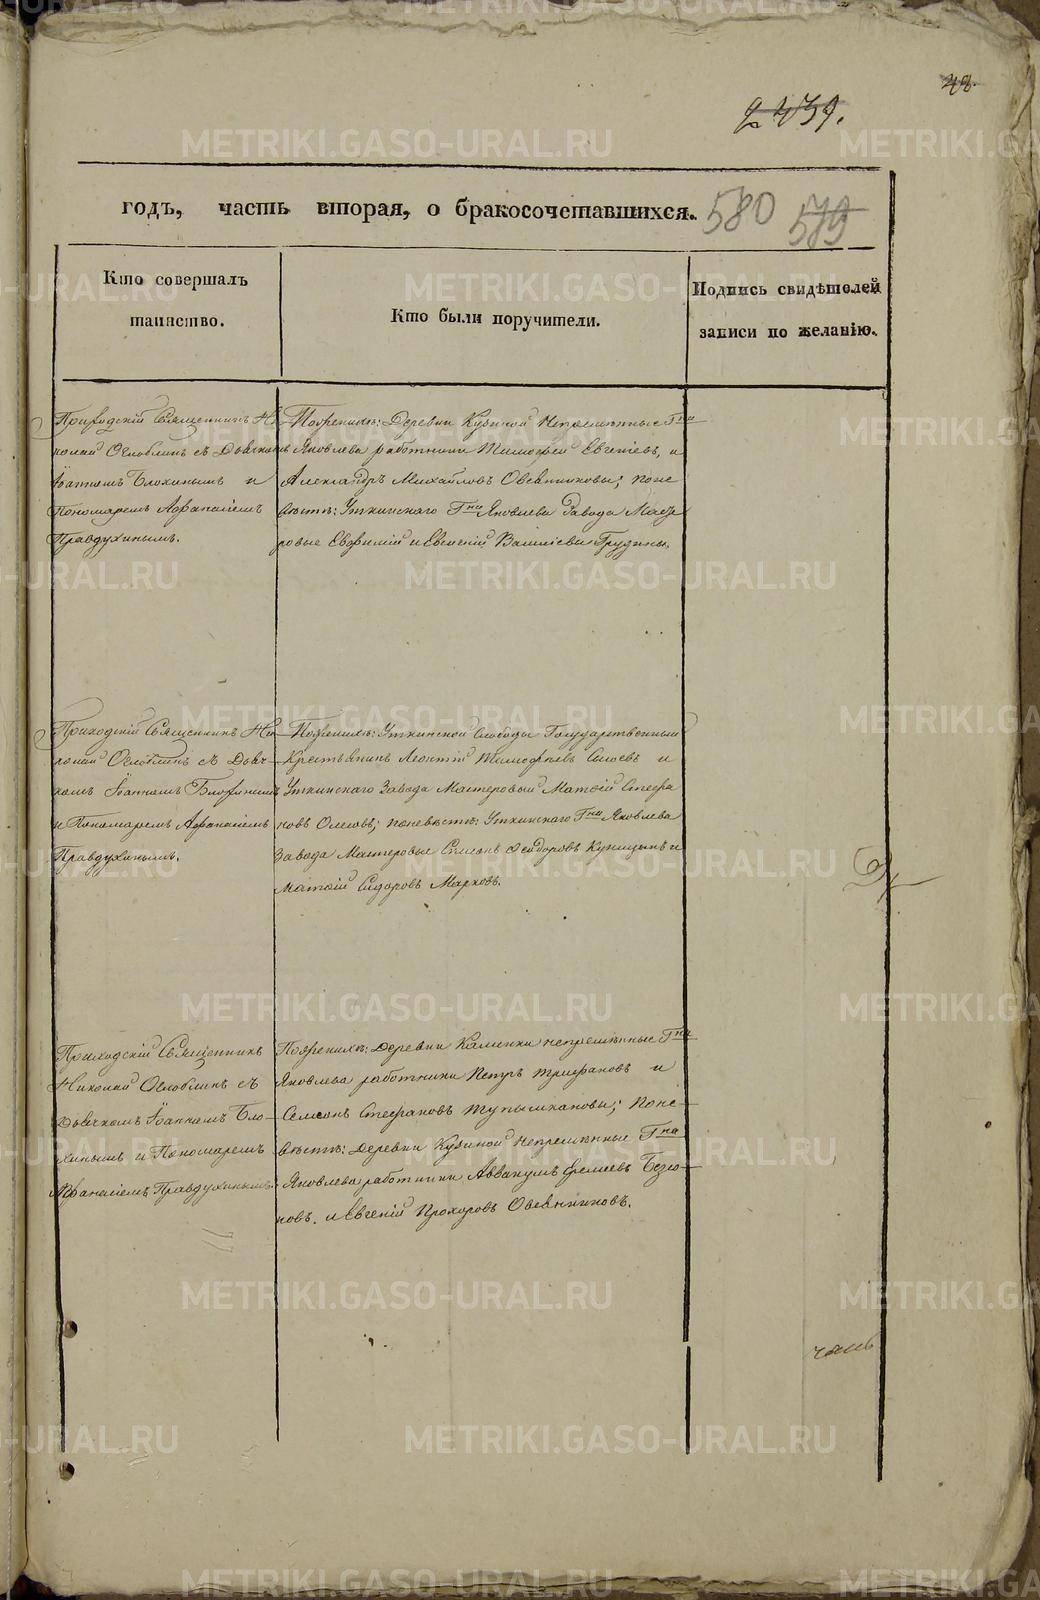 48.
2439.
годъ, часть вторая, о бракосочетавшихся. 580 579
Кто совершалъ
таинство.
Кто были поручители.
Подпись свидѣтелей
записи по желанію.
Приходскій Священникъ Ни
колай Оглоблинъ съ Дьячком
Іоанномъ Блохинымъ и
Пономаремъ Афанасіемъ
Правдухинымъ.
По женихѣ: Деревни Кузиной Непремѣнные Гна
Яковлева работники Тимофей Евгеніевъ, и
Александръ Михайловъ Овсянниковы; по не
вѣстѣ: Уткинскаго Гна Яковлева Завода Масте
ровые Евфимій и Евгеній Василіевы Грудины.
Приходскій Священникъ Ни
колай Оглоблинъ съ Дьяч-
комъ Іоанномъ Блохинымъ
и Пономаремъ Афанасіемъ
Правдухинымъ.
По женихѣ: Уткинской Слободы Государственный
Крестьянинъ Леонтій Тимофѣевъ и
Уткинскаго Завода Мастеровый Матвій Стефа
новъ; по невѣстѣ: Уткинскаго Гна Яковлева
Завода Мастеровые Симеонъ Ѳеодоровъ Купицынъ и
Матвій Сидоровъ Марковъ.
Приходскій Священникъ
Николай Оглоблинъ съ
Дьячкомъ Іоанномъ Бло-
хинымъ и Пономаремъ
Афанасіемъ Правдухинымъ.
По женихѣ: Деревни Каменки непремѣнные Гна
Яковлева работники Петръ Трифановъ и
Семіонъ Стефановъ; по не-
вѣстѣ: Деревни Кузиной Непремѣнные Гна
Яковлева работники Аввакумъ Еремеевъ
новъ. и Евгеній Прохоровъ Овсянниковъ.
часть
METRIKI.GASO-URAL.RU